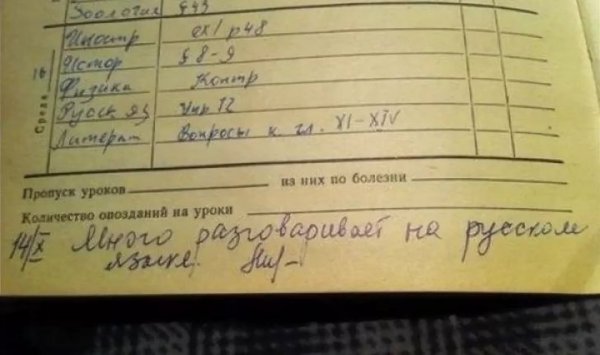 Зоология §43
Иностр ex1 p48
Истор § 8-9
Физика Контр
Русск яз Упр 12
Литерат Вопросы к гл. XI-XIV
Среда 16
Пропуск уроков из них по болезни
Количество опозданий на уроки
14/X Много разговаривает на русском
языке.